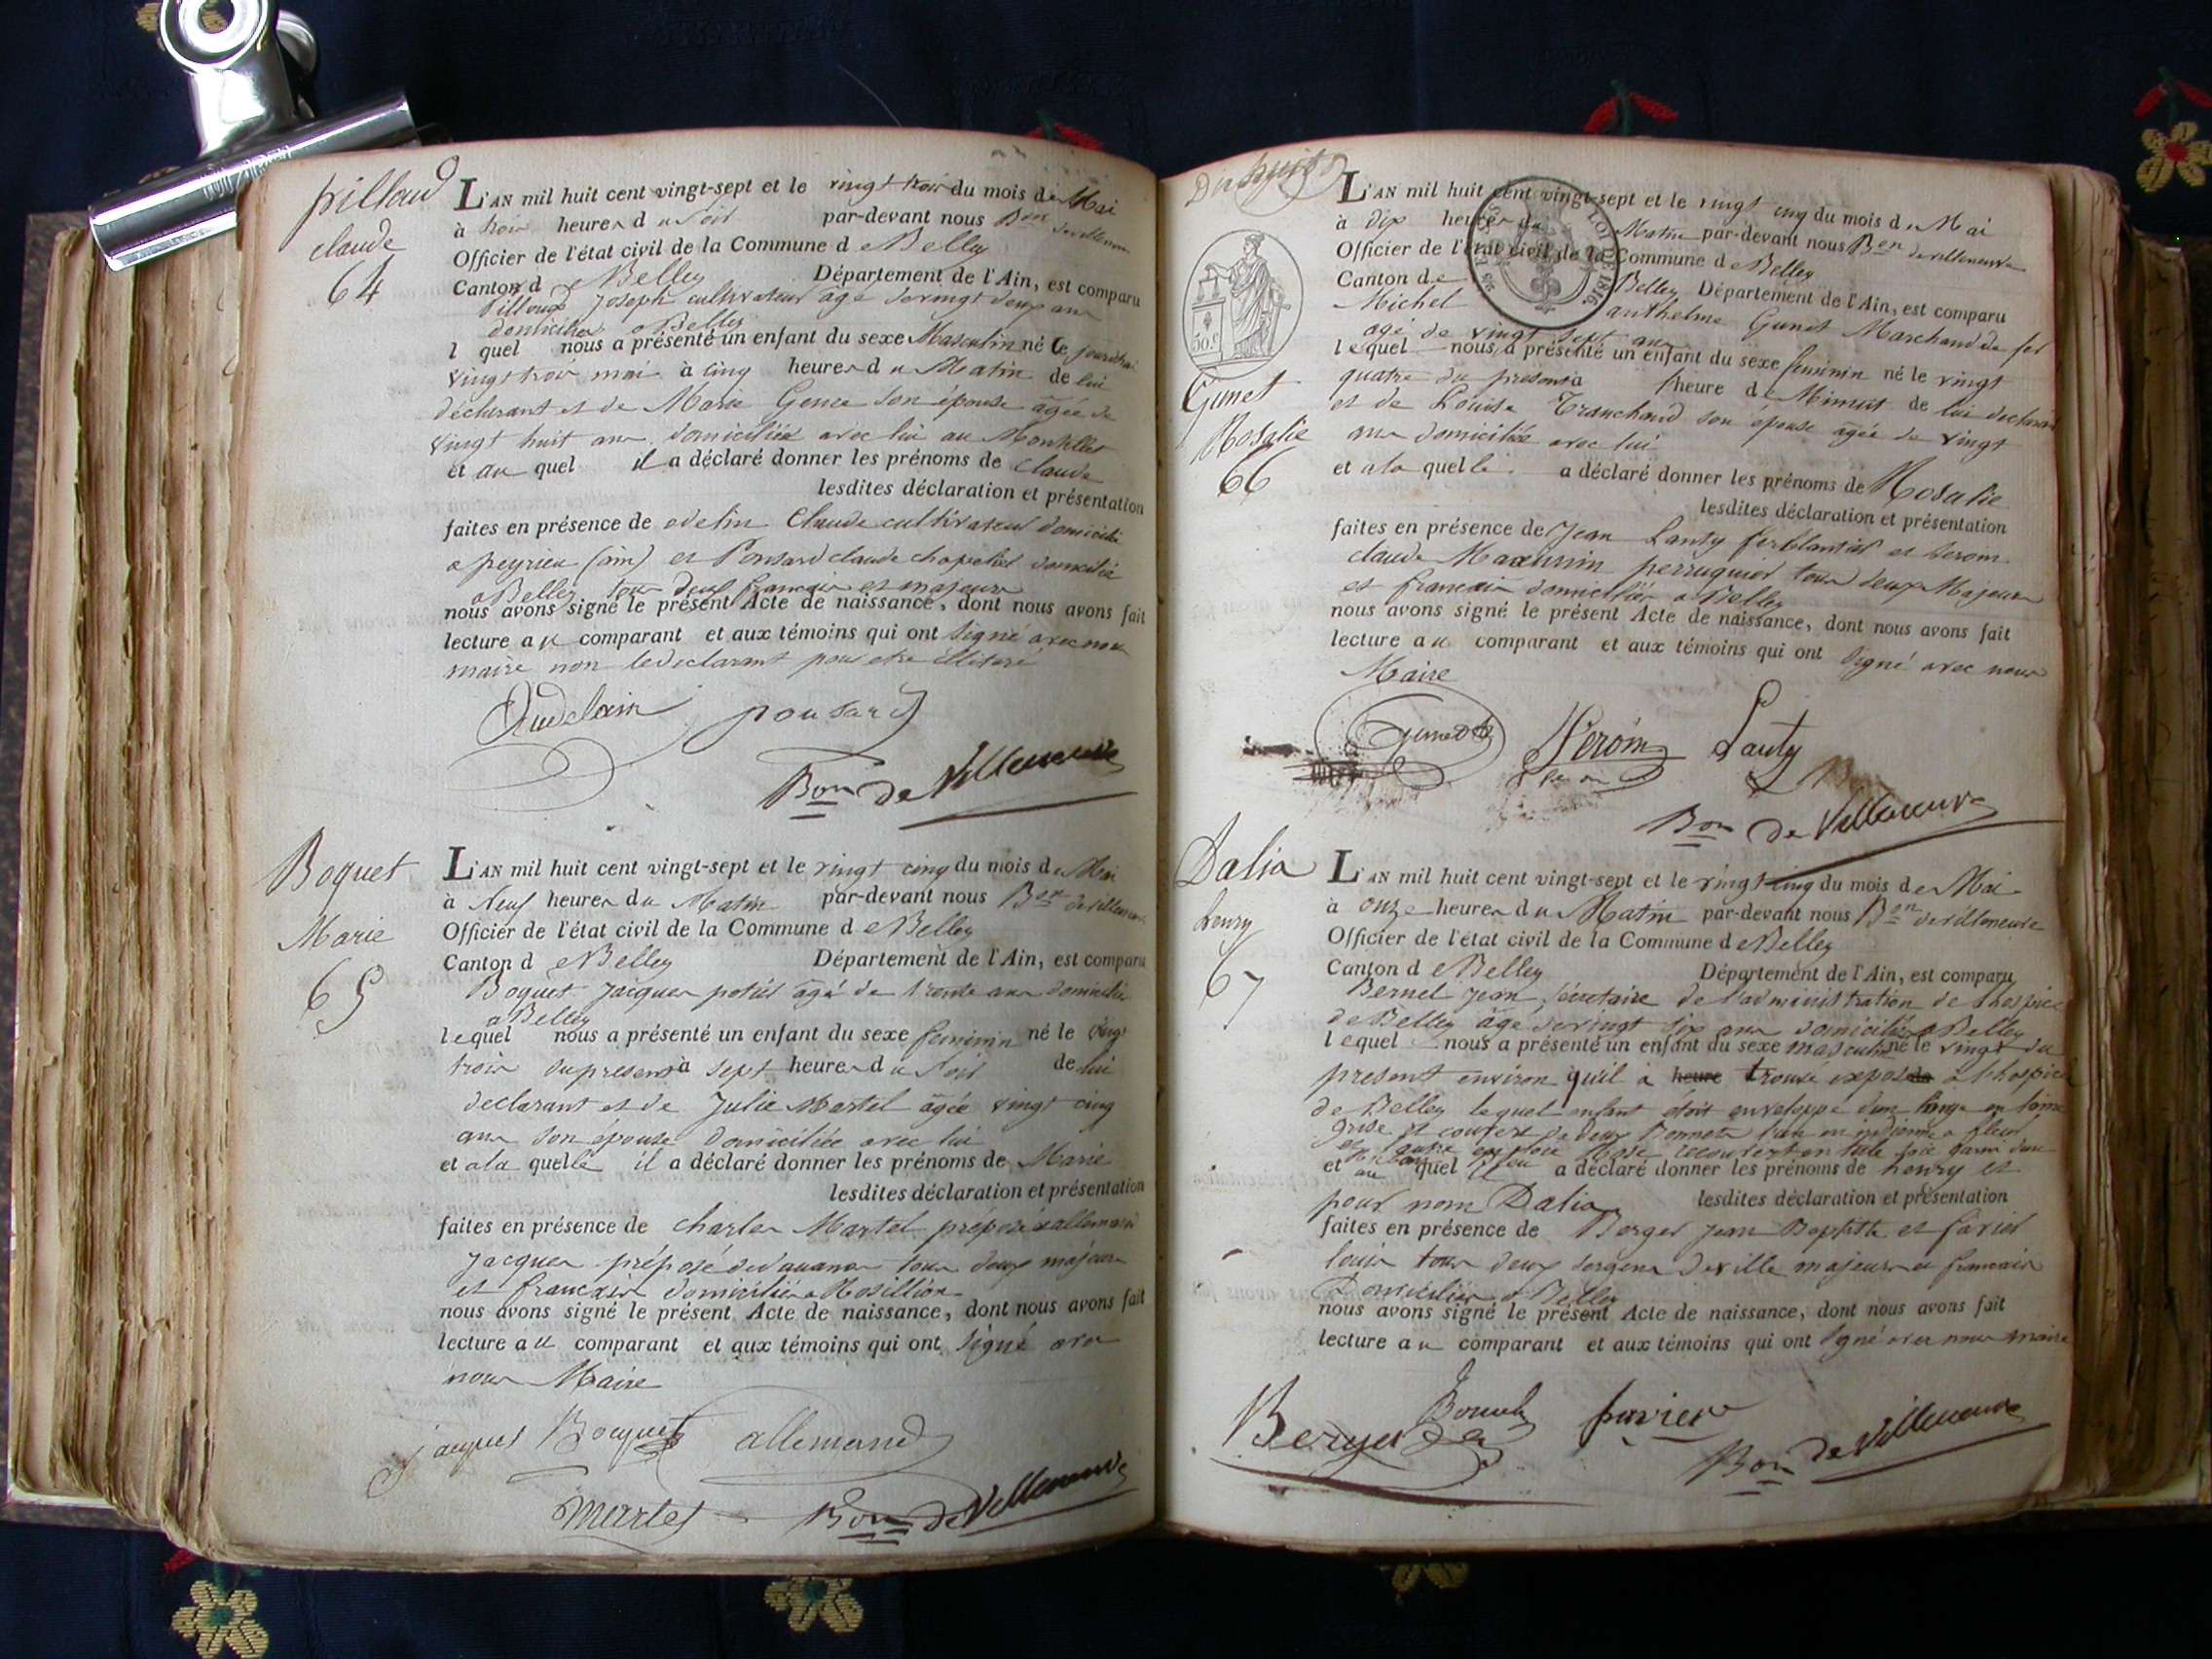 pilloud
claude
64
L'AN mil huit cent vingt-sept et le vingt trois du mois de Mai
à trois heures du Soir par-devant nous Bon devilleneuve
Officier de l'état civil de la Commune de Belley
Canton de Belley Département de l'Ain, est comparu
Pilloux Joseph cultivateur âgé de vingt deux ans
domicilié a Belley
lequel nous a présenté un enfant du sexe Masculin né Ce jourdhui
vingt trois mai à cinq heures du Matin de lui
declarant et de Marie Gence son épouse âgée de
vingt huit ans domiciliée avec lui au Montillet
et au quel il a déclaré donner les prénoms de Claude
lesdites déclaration et présentation
faites en présence de odelin Claude cultivateur domicilié
a peyrieu (ain) et Ponsard claude chapelier domicilié
a Belley tous deux francais et majeurs
nous avons signé le présent Acte de naissance, dont nous avons fait
lecture au comparant et aux témoins qui ont Signé avec nous
maire non le declarant pour etre illiteré
ponsard
Bon de Villeneuve
Boquet
Marie
65
L'AN mil huit cent vingt-sept et le vingt cinq du mois de Mai
à Neuf heures du Matin par-devant nous Bon devilleneuve
Officier de l'état civil de la Commune de Belley
Canton de Belley Département de l'Ain, est comparu
Boquet Jacques potier âgé de trente ans domicilié
a Belley
lequel nous a présenté un enfant du sexe feminin né le vingt
trois du present à sept heures du Soir de lui
declarant et de Julie Martel âgée vingt cinq
ans son épouse domiciliée avec lui
et a la quelle il a déclaré donner les prénoms de Marie
lesdites déclaration et présentation
faites en présence de charles Martel préposé allemand
Jacques préposé des douanes tous deux majeurs
et francais domiciliés a Rosillion
nous avons signé le présent Acte de naissance, dont nous avons fait
lecture au comparant et aux témoins qui ont Signé avec
nous Maire
jacques Bocquet allemand
Martel Bon de Villeneuve
LOI DE 1816.
50.c
Gunet
Rosalie
66
L'AN mil huit cent vingt-sept et le vingt cinq du mois de Mai
à dix heures du Matin par-devant nous Bon devilleneuve
Officier de l'état civil de la Commune de Belley
Canton de Belley Département de l'Ain, est comparu
Michel anthelme Gunet Marchand de fer
age de vingt sept ans
lequel nous a présenté un enfant du sexe feminin né le vingt
quatre du present à heure de Minuit de lui declarant
et de Louise Tranchand son épouse âgée de vingt
ans domiciliée avec lui
et a la quelle a déclaré donner les prénoms de Rosalie
lesdites déclaration et présentation
faites en présence de Jean Lanty ferblantier et
claude Maximin perruquier tous deux Majeurs
et francais domiciliés a Belley
nous avons signé le présent Acte de naissance, dont nous avons fait
lecture au comparant et aux témoins qui ont Signé avec nous
Maire
Lanty
Bon de Villeneuve
Dalia
henry
67
L'AN mil huit cent vingt-sept et le vingt cinq du mois de Mai
à onze heures du Matin par-devant nous Bon devilleneuve
Officier de l'état civil de la Commune de Belley
Canton de Belley Département de l'Ain, est comparu
Bernel Jean Sécretaire de l'administration de l'hospice
de Belley âgé de vingt six ans domicilié a Belley
lequel nous a présenté un enfant du sexe masculin né le vingt du
present environ qu'il à heure trouvé exposé à l'hospice
de Belley lequel enfant étoit enveloppé d'un lange en laine
grise et couvert de deux Bonnets l'un en indienne a fleur
et l'autre en soie Rose recouvert en tule soie garni d'un
et au quel Ruban bleu a déclaré donner les prénoms de henry et
pour nom Dalia lesdites déclaration et présentation
faites en présence de Berger Jean Baptiste et favier
louis tous deux sergens de ville majeurs et francais
Domiciliés a Belley
nous avons signé le présent Acte de naissance, dont nous avons fait
lecture au comparant et aux témoins qui ont Signé avec nous maire
Berger favier
Bon de Villeneuve